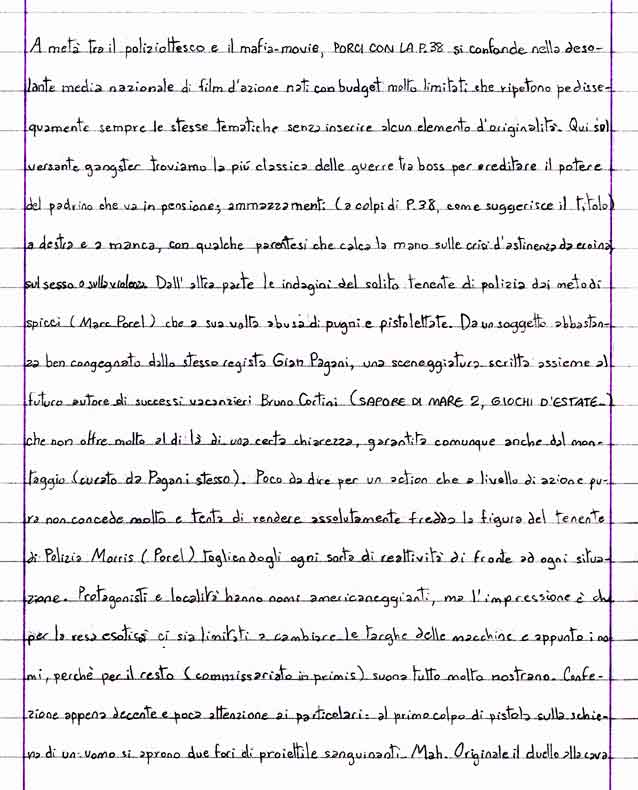 A metà tra il poliziottesco e il mafia-movie, PORCI CON LA P.38 si confonde nella deso-
lante media nazionale di film d'azione nati con budget molto limitati che ripetono pedisse-
quamente sempre le stesse tematiche senza inserire alcun elemento d'originalità. Qui sul
versante gangster troviamo la più classica delle guerre tra boss per ereditare il potere
del padrino che va in pensione; ammazzamenti (a colpi di P.38, come suggerisce il titolo)
a destra e a manca, con qualche parentesi che calca la mano sulle crisi d'astinenza da eroina,
sul sesso o sulla violenza. Dall'altra parte le indagini del solito tenente di polizia dai metodi
spicci (Marc Porel) che a sua volta abusa di pugni e pistolettate. Da un soggetto abbastan-
za ben congegnato dallo stesso regista Gian Pagani, una sceneggiatura scritta assieme al
futuro autore di successi vacanzieri Bruno Cortini (SAPORE DI MARE 2, GIOCHI D'ESTATE...)
che non offre molto al di là di una certa chiarezza, garantita comunque anche dal mon-
taggio (curato da Pagani stesso). Poco da dire per un action che a livello di azione pu-
ra non concede molto e tenta di rendere assolutamente fredda la figura del tenente
di Polizia Morris (Porel) togliendogli ogni sorta di reattività di fronte ad ogni situa-
zione. Protagonisti e località hanno nomi americaneggianti, ma l'impressione è che
per la resa esotica ci sia limitati a cambiare le targhe delle macchine e appunto i no
mi, perchè per il resto (commissariato in primis) suona tutto molto nostrano. Confe-
zione appena decente e poca attenzione ai particolari: al primo colpo di pistola sulla schie-
na di un uomo si aprono due fori di proiettile sanguinanti. Mah. Originale il duello alla cava